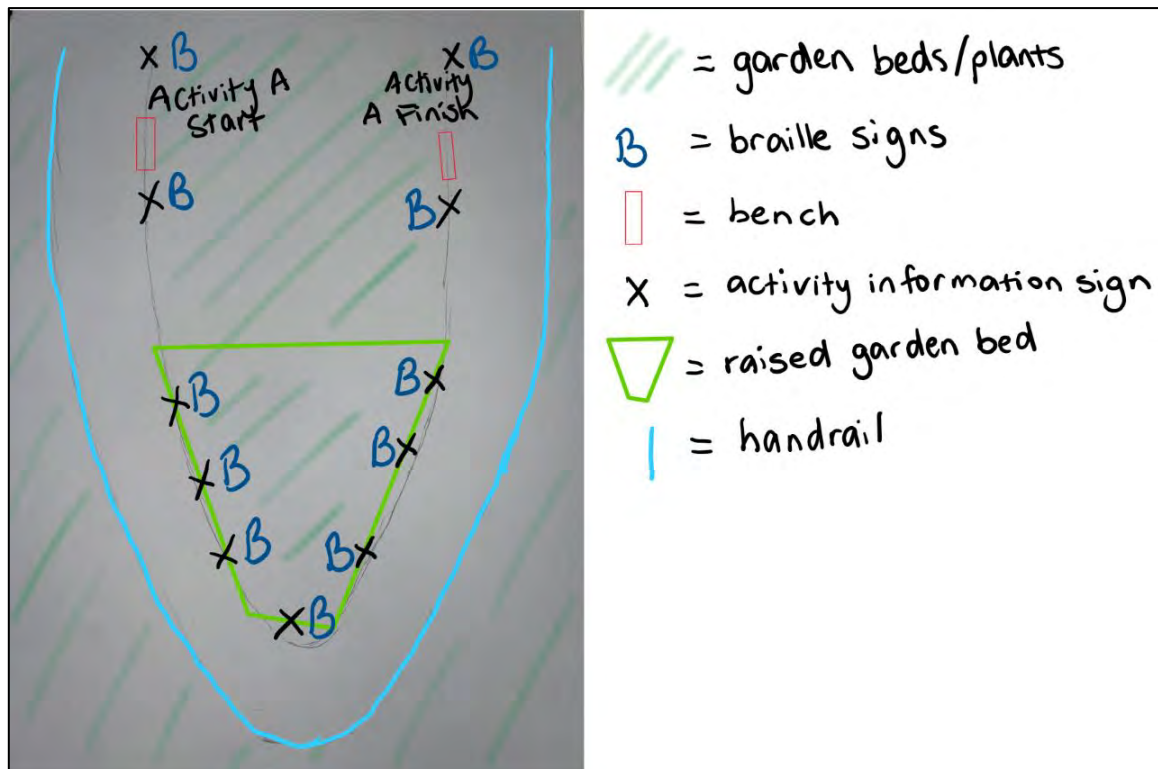 X B
X B
Activity A
Start
Activity
A Finish
X B
B X
B X
X B
B X
X B
X B
B X
X B
= garden beds/plants
B = braille signs
= bench
X = activity information sign
= raised garden bed
= handrail